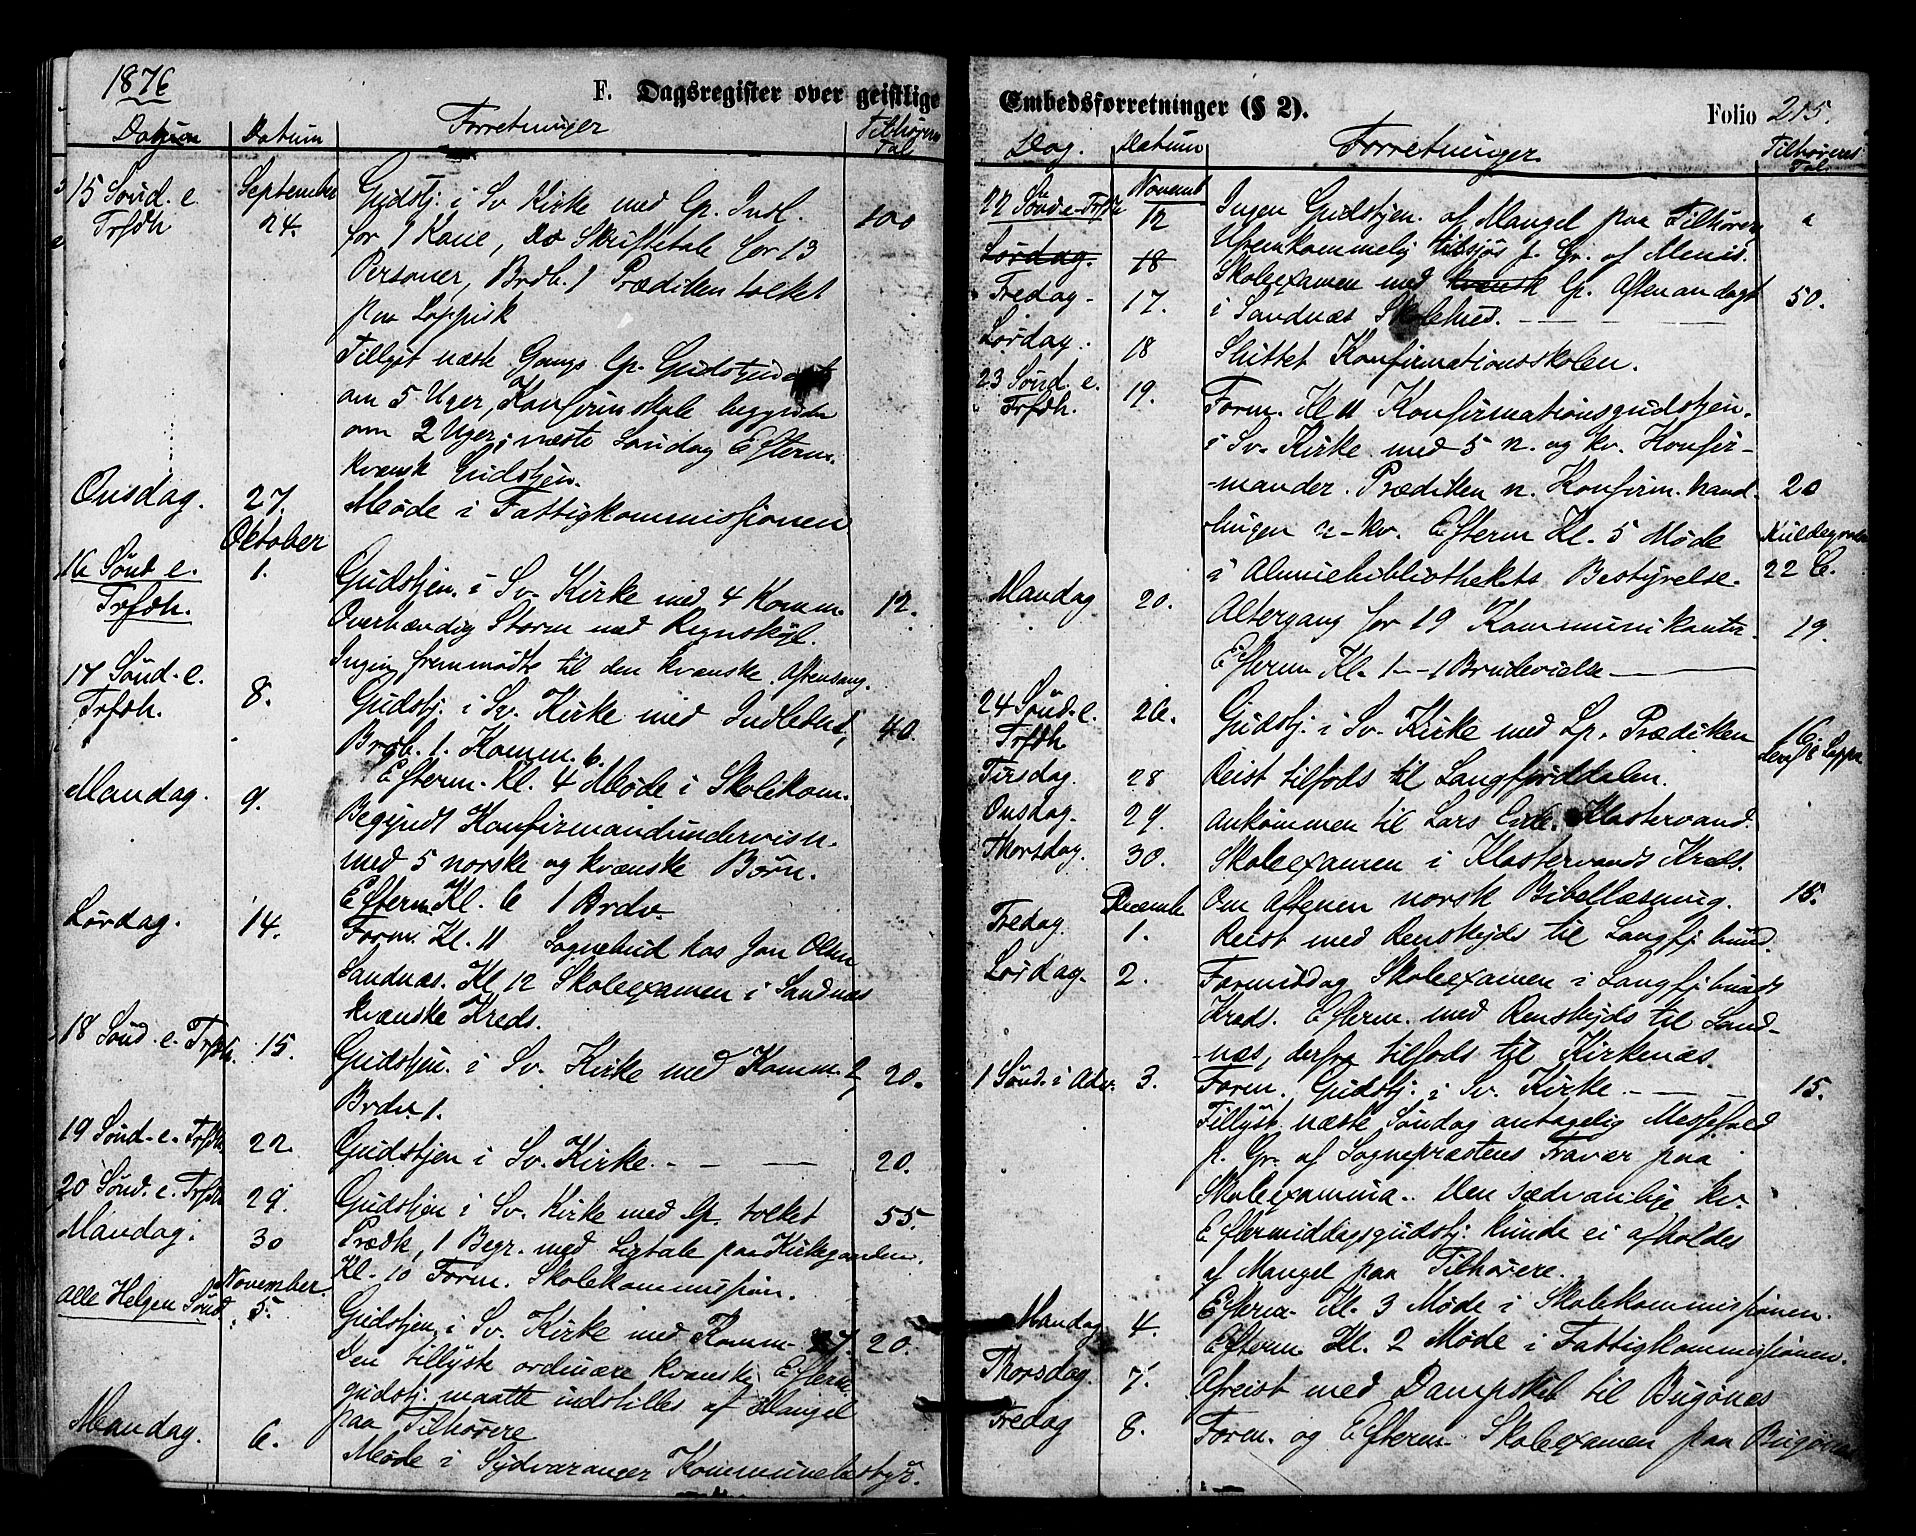 1876
F. Dagsregister over geistlige
Datum Datum Forretninger Tilhørern Tal
15 Sønd. e. Trfdh September 24. Gudstj. i Sv Kirke med Lp. Indl. 100
for 1 Kone, Do Skriftetale for 13
Personer, Brdh. 1 Prædiken tolket
paa Lappisk
Tillyst næste Gangs Lp. Gudstjeneste
om 5 Uger, Konfirm skole begynder
om 2 Uger, næste Søndag Efterm.
kvænsk Gudstjen.
Onsdag. 27. Møde i Fattigkommissionen
Oktober
16 Sønd e. Trfdh. 1. Gudstjen. i Sv. Kirke med 4 Komm. 12.
Overhændig Storm med Regnskyl.
Ingen fremmødte til den kvænske Aftensang.
17 Sønd. e. Trfdh. 8. Gudstj. i Sv. Kirke med Indledn., 40
Brdb. 1. Komm. 6.
Efterm. Kl. 4 Møde i Skolekom.
Mandag. 9. Begyndt Konfirmandundervisn.
med 5 norske og kvænske Børn.
Efterm. Kl. 6 1 Brdv
Lørdag. 14. Form. Kl. 11 Sognebud hos Jon Olsen
Sandnæs. Kl 12 Skoleexamen i Sandnæs
kvænske Kreds.
18 Sønd. e. Trfdh. 15. Gudstjen. i Sv. Kirke med Komm. 2 20.
Brdv. 1.
19 Sønd. e. Trfdh 22. Gudstjen i Sv. Kirke. - - - 20.
20 Sønd. e. Trfdh 29. Gudstjen i Sv. Kirke med Lp. tolket 55.
Prædk, 1 Begr. med Ligtale paa Kirkegaarden.
Mandag. 30 Kl. 10 Form. Skolekommission.
November
Alle Helgen Sønd. 5. Gudstjen. i Sv. Kirke med Komm. 27. 20.
Den tillyste ordinære kvænske Efterm.
gudstj. maatte indstilles af Mangel
paa Tilhørere
Mandag. 6. Møde i Sydvaranger Kommunebestyr.
Embedsforretninger (§ 2).
Folio 215.
Dag. Datum Forretninger Tilhøreres Tal.
Novemb
22 Sønd e. Trfdh 12 Ingen Gudstjen. af Mangel paa Tilhørere
Lørdag. 18 Ufremkommelig p. Gr. af Menis.
Fredag. 17. Skoleexamen med kvænsk Lp. Aftenandagt 50.
i Sandnæs Skolehus. - - -
Lørdag. 18 Sluttet Konfirmationsskolen.
23 Sønd. e. Trfdh. 19. Form. Kl 11 Konfirmationsgudstjen.
i Sv. Kirke med 5 n. og kv. Konfir-
-mander. Prædiken n. Konfirm. hand- 20
-lingen n-kv. Efterm Kl. 5 Møde Kuldegrader
i Almuebibliothekets Bestyrelse. 22 C.
Mandag 20. Altergang for 19 Kommunikanter. 19.
Efterm Kl. 1 - 1 Brudevielse -
24 Sønd. e. Trfdh. 26. Gudstj. i Sv. Kirke med Lp. Prædiken 16.
Tirsdag. 28 Reist tilfods til Langfjorddalen.
Onsdag. 29. Ankommen til Lars Klostervand.
Thorsdag. 30. Skoleexamen i Klostervands Kreds.
Om Aftenen norsk Bibellæsning. 15.
Decembr
Fredag. 1. Reist med Renskyds til Langfj bund.
Lørdag. 2. Formiddag Skoleexamen i Langfjbunds
Kreds. Efterm. med Renskyds til Sand-
-næs, derfra tilfods til Kirkenæs.
1 Sønd. i Adv. 3. Form. Gudstj. i Sv. Kirke - - - 15.
Tillyst næste Søndag antagelig Messefald
p. Gr. af Sognepræstens Fravær paa
Skoleexamina. Den sædvanlige kv.
Eftermiddagsgudstj. kunde ei afholdes
af Mangel paa Tilhørere.
Efterm. Kl. 3 Møde i Skolekommissionen.
Mandag 4. Efterm Kl. 2 Møde i Fattigkommissionen.
Thorsdag. 7. Afreist med Dampskib til Bugønæs
Fredag 8. Form. og Efterm. Skoleexamen paa Bugønæs